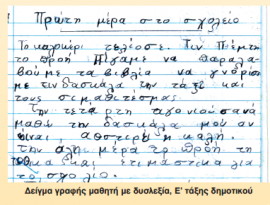 Πρώτη μέρα στο σχολείο
Το καλοκέρι τελίοσε. Τιν Πέμπτη
το προῆ Πίγαμε να παραλα
βούμε τα βιβλεία να γνόρισο
με τιν δασκάλα την τάξι και
τους σιμαθιτές μας
Την τετάρτη αγονιούσα να
μαθω την δασκάλα μου αν
είναι αφστερι καλή.
Την άλη μέρα το προῆ τη
και ετιμάστικα για
το σχολίο.
Δείγμα γραφής μαθητή με δυσλεξία, Ε' τάξης δημοτικού